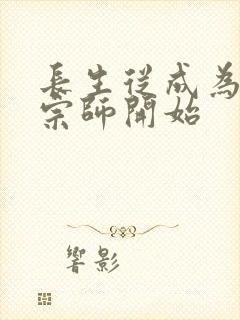 長生從成為
宗師開始
響影